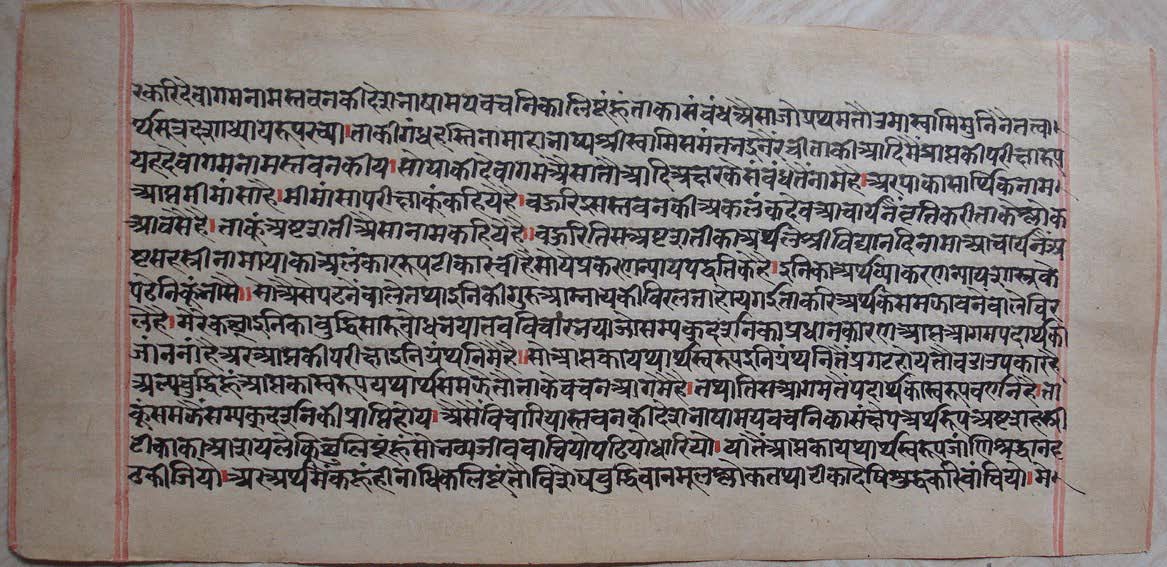 रकरि देवागमनामस्तवनकी देशभाषामय वचनिका लिखूंहूं ताका संबंध ऐसा जो प्रथम तौ उमास्वामि मुनिनै तत्वा
र्थसूत्र दशाध्यायरूप रच्या । ताकी गंधहस्तिनामा महाभाष्य श्रीस्वामिसमंतभद्रनै रची ताकी आदिमें आप्तकी परीक्षारूप
यह देवागमनामस्तवन कीया । सो याकी देवागम ऐसा तौ आदि अक्षरके संबंधतैं नाम है । अर याका सार्थिक नाम
आप्तमीमांसा है । मीमांसा परीक्षाकूं कहिये है । बहुरि इस स्तवनकी अकलंकदेव आचार्यनै वृत्ति करी ताके श्लोक
आठसै है । ताकूं अष्टशती ऐसा नाम कहिये है । बहुरि तिस अष्टशतीका अर्थ लेय श्रीविद्यानंदिनामा आचार्यनै अ
ष्टसहस्री नामा याका अलंकाररूप टीका रची है सो यह प्रकरण न्यायपद्धतिका है । इनिका अर्थ व्याकरण न्यायशास्त्रके
पढेनिकूं भासै । सो ऐसे पठनेवाले तथा इनिकी गुरु आम्नायकी विरलता होय गई ताकरि अर्थके समझावनेवाले विर
ले है । मेरे कछू इनिका बुद्धिसारू बोध भया तब विचार भया जो सम्यक्दर्शनका प्रधान कारण आप्त आगम पदार्थका
जांननां है अर आप्तकी परीक्षा इनि ग्रंथनिमें है । सो आप्तका यथार्थस्वरूप इनि ग्रंथनितैं प्रगट होय तौ बडा उपकार है
अल्पबुद्धिहूं आप्तका स्वरूप यथार्थ समझै तौ ताके वचन आगम है । तथा तिस आगमतैं पदार्थका स्वरूप वर्णन है । ता
कूं समझें सम्यक्दर्शनकी प्राप्ति होय । ऐसैं विचारि या स्तवनकी देशभाषामय वचनिका संक्षेप अर्थरूप अष्टशहस्री
टीकाका आशय लेकरि कछू लिखूंहूं सो भव्यजीव वांचियो पढियो धारियो । यातैं आप्तका यथार्थस्वरूप जांणि श्रद्धान दृ
ढ कीजियो । अर अर्थमें कहूं हीनाधिक लिखूं तौ विशेषबुद्धिवान मूलश्लोक तथा टीका देषि शुद्धकरि वांचियो । मे